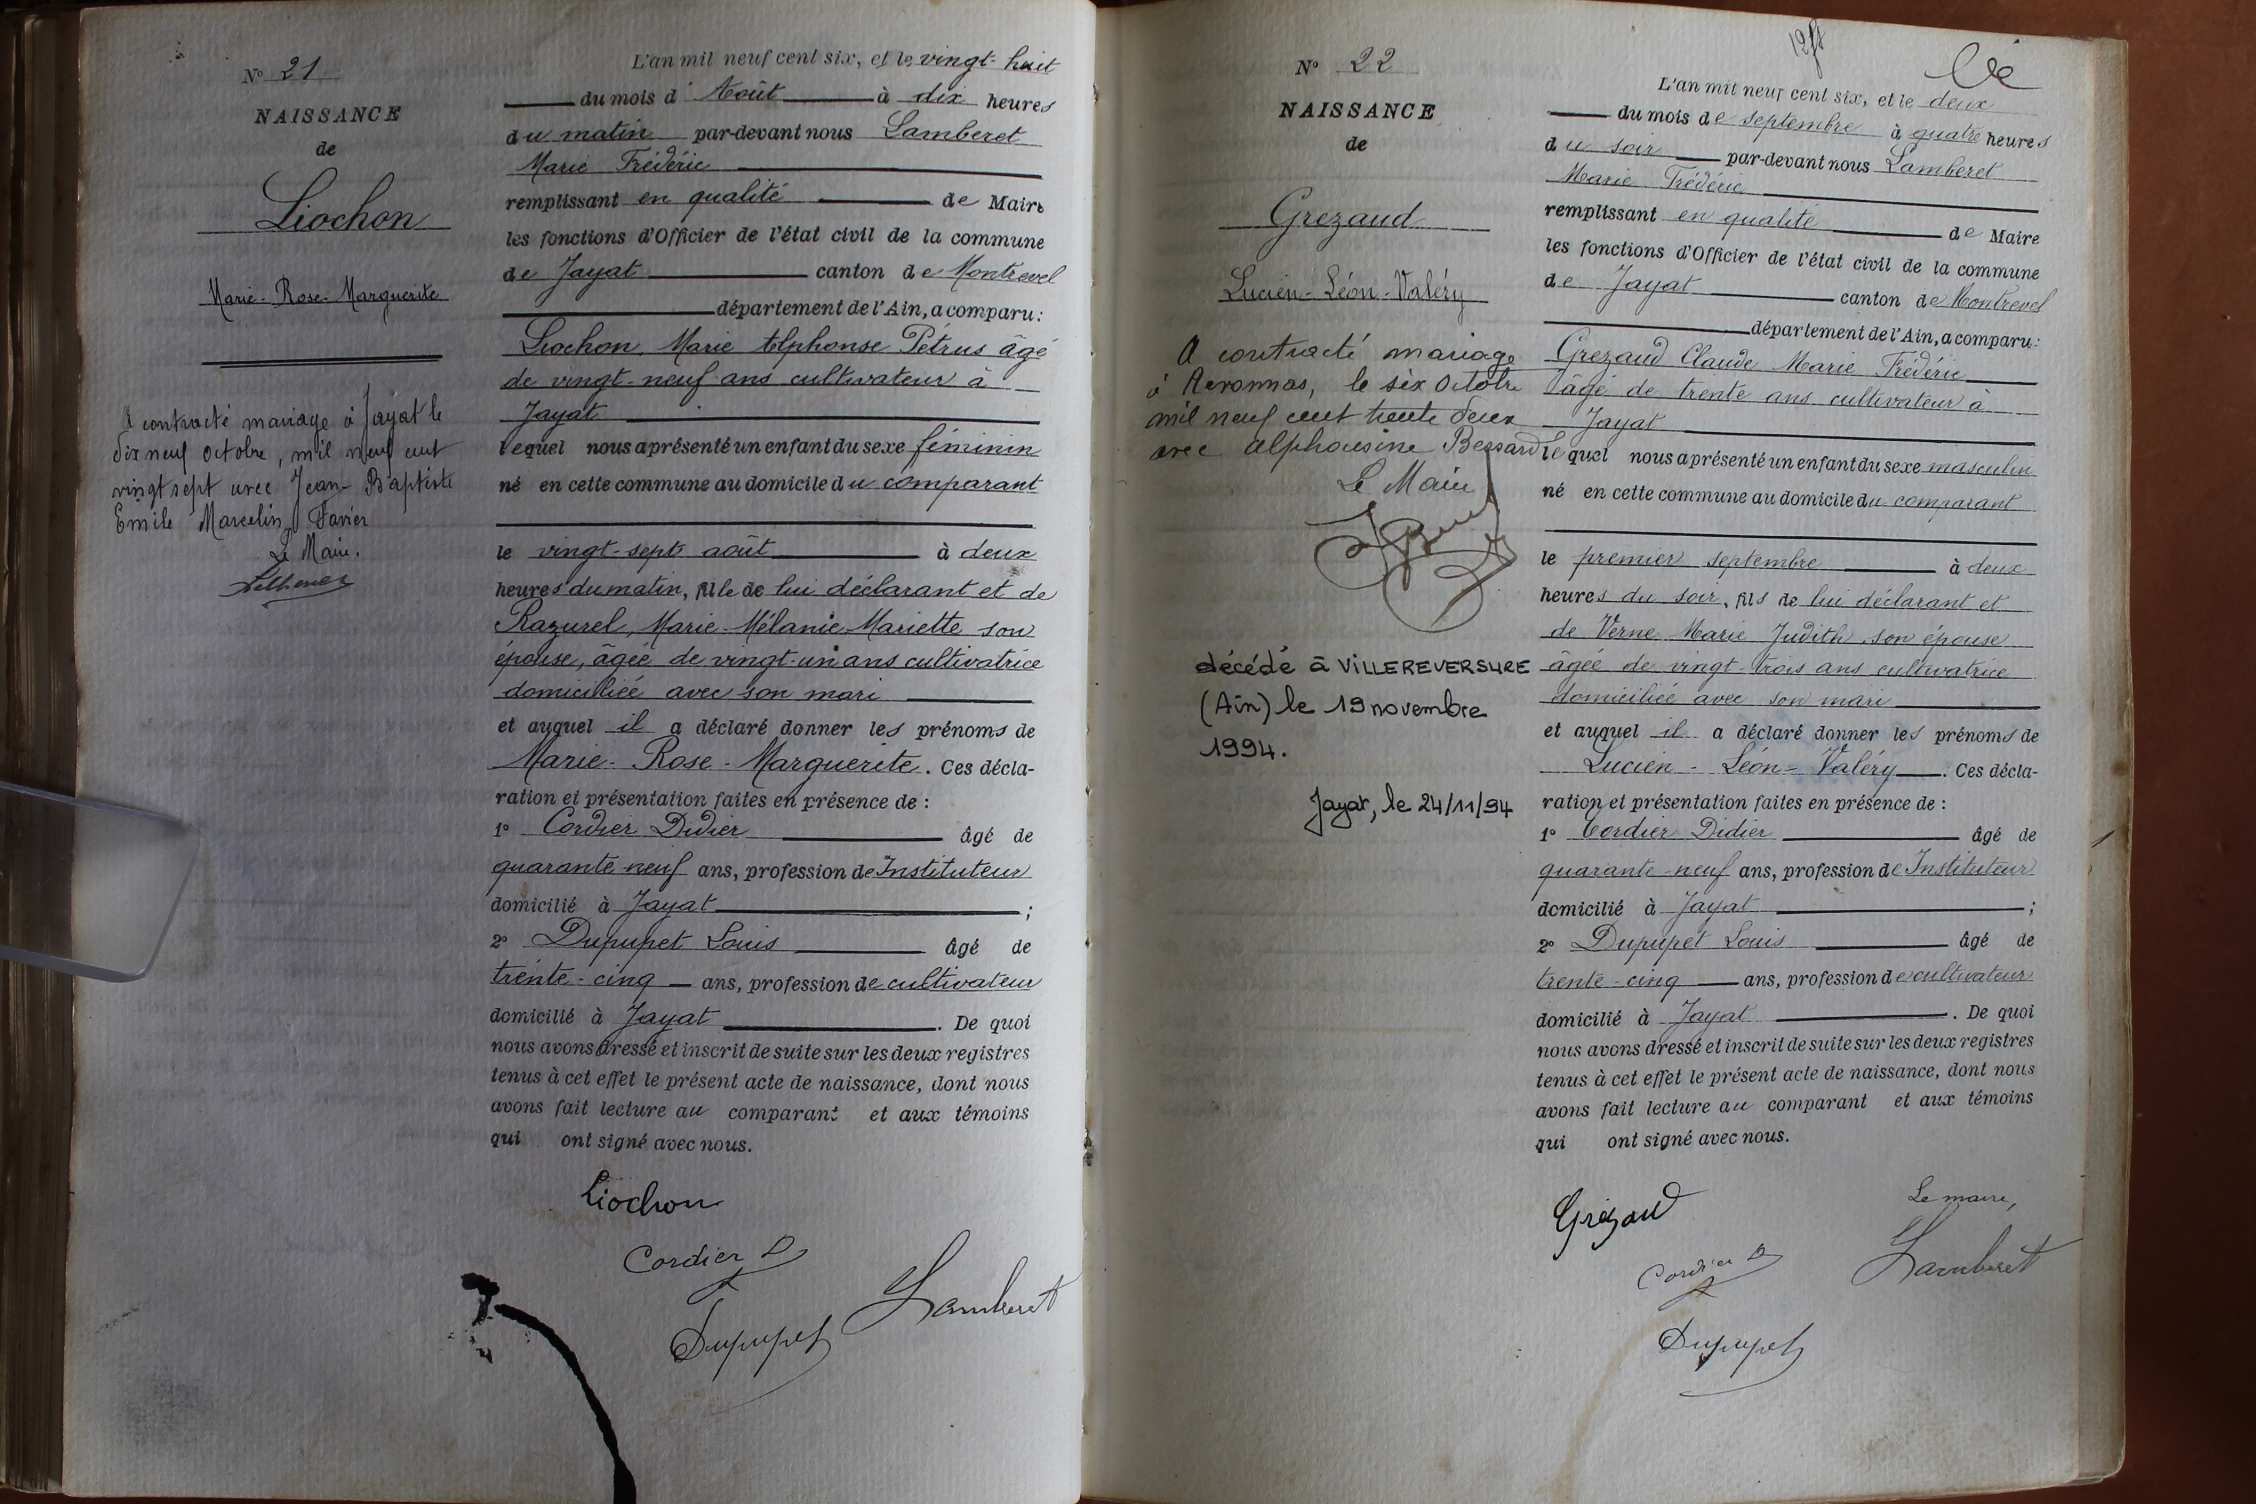 N° 21
NAISSANCE
de
Liochon
Marie-Rose-Marguerite
A contracté mariage à Jayat le
dix neuf octobre, mil neuf cent
vingt sept avec Jean-Baptiste
Emile Marcelin Favier
Le Maire.
L'an mil neuf cent six, et le vingt-huit
du mois d'Août à dix heures
du matin par-devant nous Lamberet
Marie Frédéric
remplissant en qualité de Maire
les fonctions d'Officier de l'état civil de la commune
de Jayat canton de Montrevel
département de l'Ain, a comparu:
Liochon, Marie Alphonse Pétrus âgé
de vingt-neuf ans cultivateur à
Jayat
lequel nous a présenté un enfant du sexe féminin
né en cette commune au domicile du comparant
le vingt-sept août à deux
heures du matin, fille de lui déclarant et de
Razurel, Marie-Mélanie-Mariette son
épouse, âgée de vingt-un ans cultivatrice
domiciliée avec son mari
et auquel il a déclaré donner les prénoms de
Marie-Rose-Marguerite. Ces décla-
ration et présentation faites en présence de :
1° Cordier Didier âgé de
quarante neuf ans, profession de Instituteur
domicilié à Jayat ;
2° Dupupet Louis âgé de
trente-cinq ans, profession de cultivateur
domicilié à Jayat . De quoi
nous avons dressé et inscrit de suite sur les deux registres
tenus à cet effet le présent acte de naissance, dont nous
avons fait lecture au comparant et aux témoins
qui ont signé avec nous.
Liochon
Cordier D
Lamberet
Dupupet
N° 22
NAISSANCE
de
Grezaud
Lucien-Léon-Valéry
A contracté mariage
à Revonnas, le six Octobre
mil neuf cent trente deux
avec Alphonsine Bessard
Le Maire
décédé à VILLEREVERSURE
(Ain) le 19 novembre
1994.
Jayat, le 24/11/94
L'an mil neuf cent six, et le deux
du mois de septembre à quatre heures
du soir par-devant nous Lamberet
Marie Frédéric
remplissant en qualité de Maire
les fonctions d'Officier de l'état civil de la commune
de Jayat canton de Montrevel
département de l'Ain, a comparu:
Grezaud Claude Marie Frédéric
âgé de trente ans cultivateur à
Jayat
lequel nous a présenté un enfant du sexe masculin
né en cette commune au domicile du comparant
le premier septembre à deux
heures du soir, fils de lui déclarant et
de Verne Marie Judith son épouse
âgée de vingt-trois ans cultivatrice
domiciliée avec son mari
et auquel il a déclaré donner les prénoms de
Lucien-Léon-Valéry. Ces décla-
ration et présentation faites en présence de :
1° Cordier Didier âgé de
quarante-neuf ans, profession de Instituteur
domicilié à Jayat ;
2° Dupupet Louis âgé de
trente-cinq ans, profession de cultivateur
domicilié à Jayat . De quoi
nous avons dressé et inscrit de suite sur les deux registres
tenus à cet effet le présent acte de naissance, dont nous
avons fait lecture au comparant et aux témoins
qui ont signé avec nous.
Grézaud
Le maire,
Cordier D
Lamberet
Dupupet